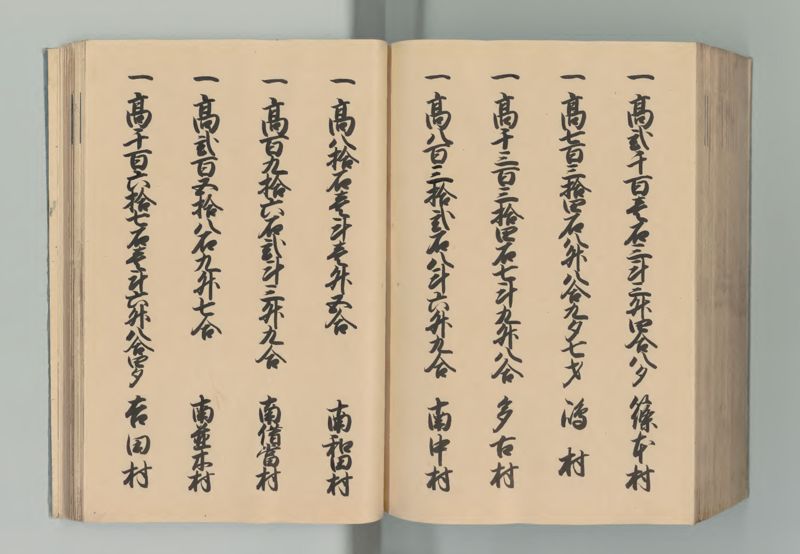 一 高弐千百壱石三斗三升四合八夕 篠本村
一 高七百三拾四石八升八合九夕七才 鴻村
一 高千三百三拾四石七斗九升八合 多古村
一 高八百三拾弐石八斗六升九合 南中村
一 高八拾石壱斗壱升五合 南和田村
一 高百九拾六石弐斗三升九合 南借當村
一 高弐百五拾八石九升七合 南並木村
一 高千百六拾七石壱斗六升八合四夕 吉田村